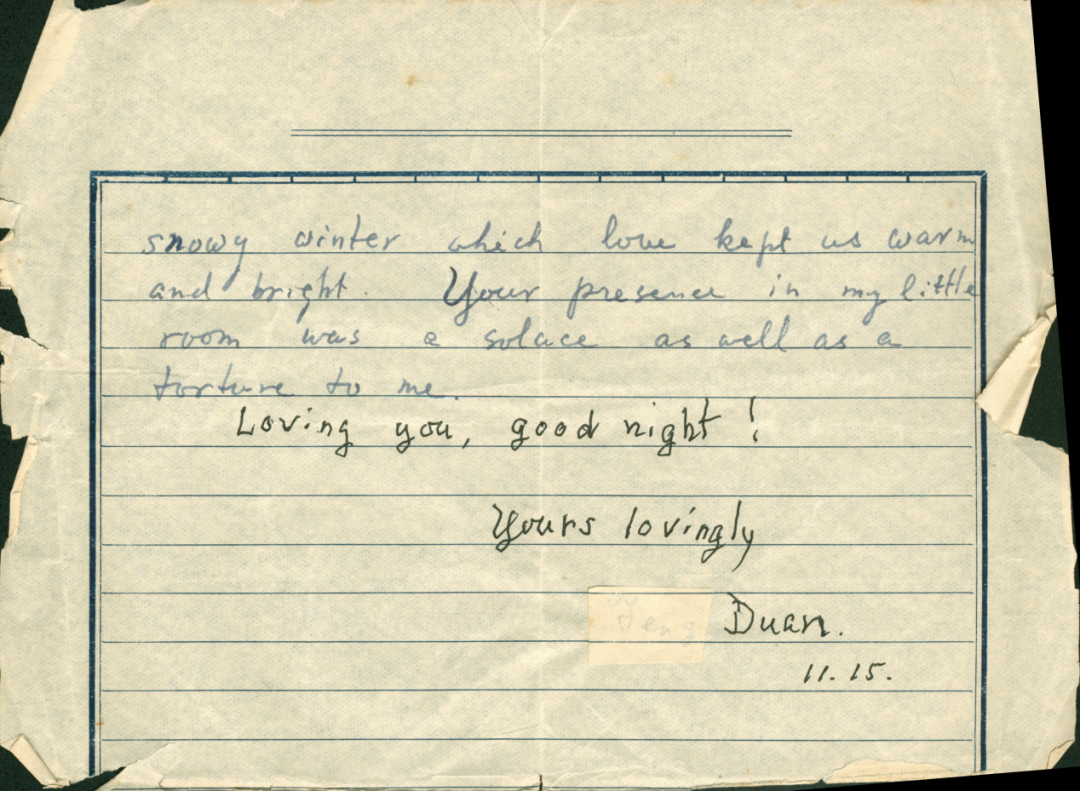 snowy winter which love kept us warm
and bright. Your presence in my little
room was a solace as well as a
torture to me.
Loving you, good night!
Yours lovingly
Duan.
11.15.